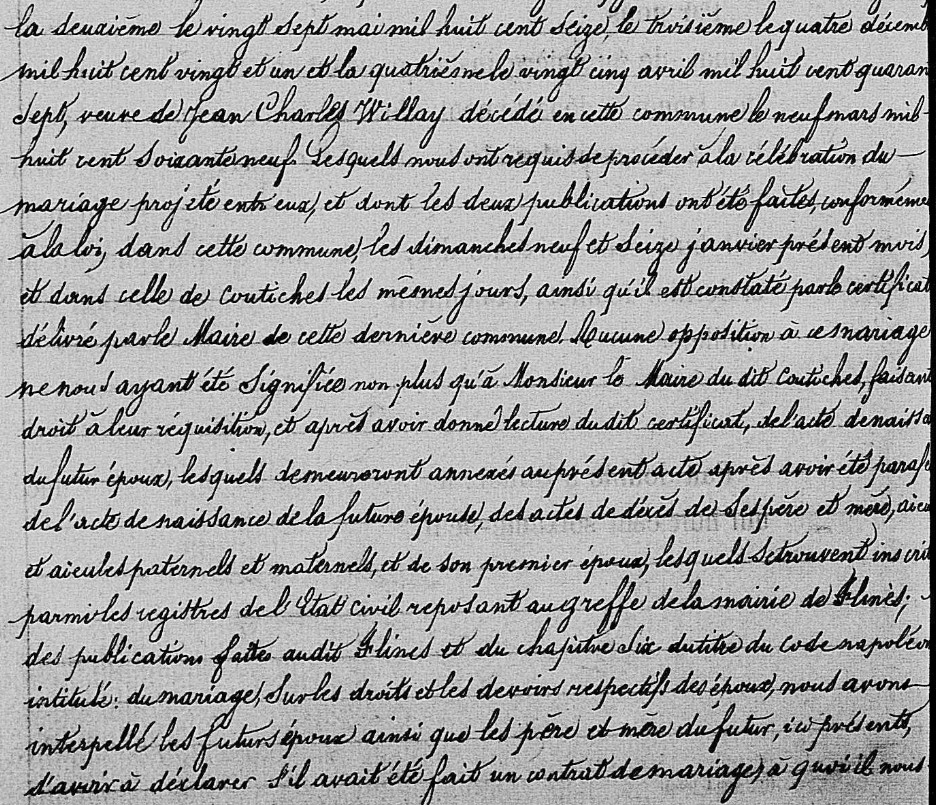 la deuxième le vingt sept mai mil huit cent seize, le troisième le quatre décemb
mil huit cent vingt et un et la quatrième le vingt cinq avril mil huit cent quaran
sept, veuve de Jean Charles Willay décédé en cette commune le neuf mars mil
huit cent soixante neuf. Lesquels nous ont requis de procéder à la célébration du
mariage projété entr eux, et dont les deux publications ont été faites, conforméme
à la loi, dans cette commune, les dimanches neuf et seize janvier présent mois,
et dans celle de Coutiches les mêmes jours, ainsi qu'il est constaté par le certificat
délivré par le Maire de cette dernière commune. Aucune opposition à ce mariage
ne nous ayant été signifiée non plus qu'à Monsieur le Maire du dit Coutiches, faisant
droit à leur réquisition, et après avoir donné lecture du dit certificat, de l'acte de naissa
du futur époux, lesquels demeureront annexés au présent acte après avoir été parafé
de l'acte de naissance de la future épouse, des actes de décès de ses père et mère, aïeu
et aïeules paternels et maternels, et de son premier époux, lesquels se trouvent inscrit
parmi les registres de l'Etat civil reposant au greffe de la mairie de Flines;
des publications faites audit Flines et du chapitre six du titre du code napoléon
intitulé: du mariage, sur les droits et les devoirs respectifs des époux, nous avons
interpellé les futurs époux ainsi que les père et mère du futur, ici présents,
d'avoir à déclarer s'il avait été fait un contrat de mariage, à quoi il nous